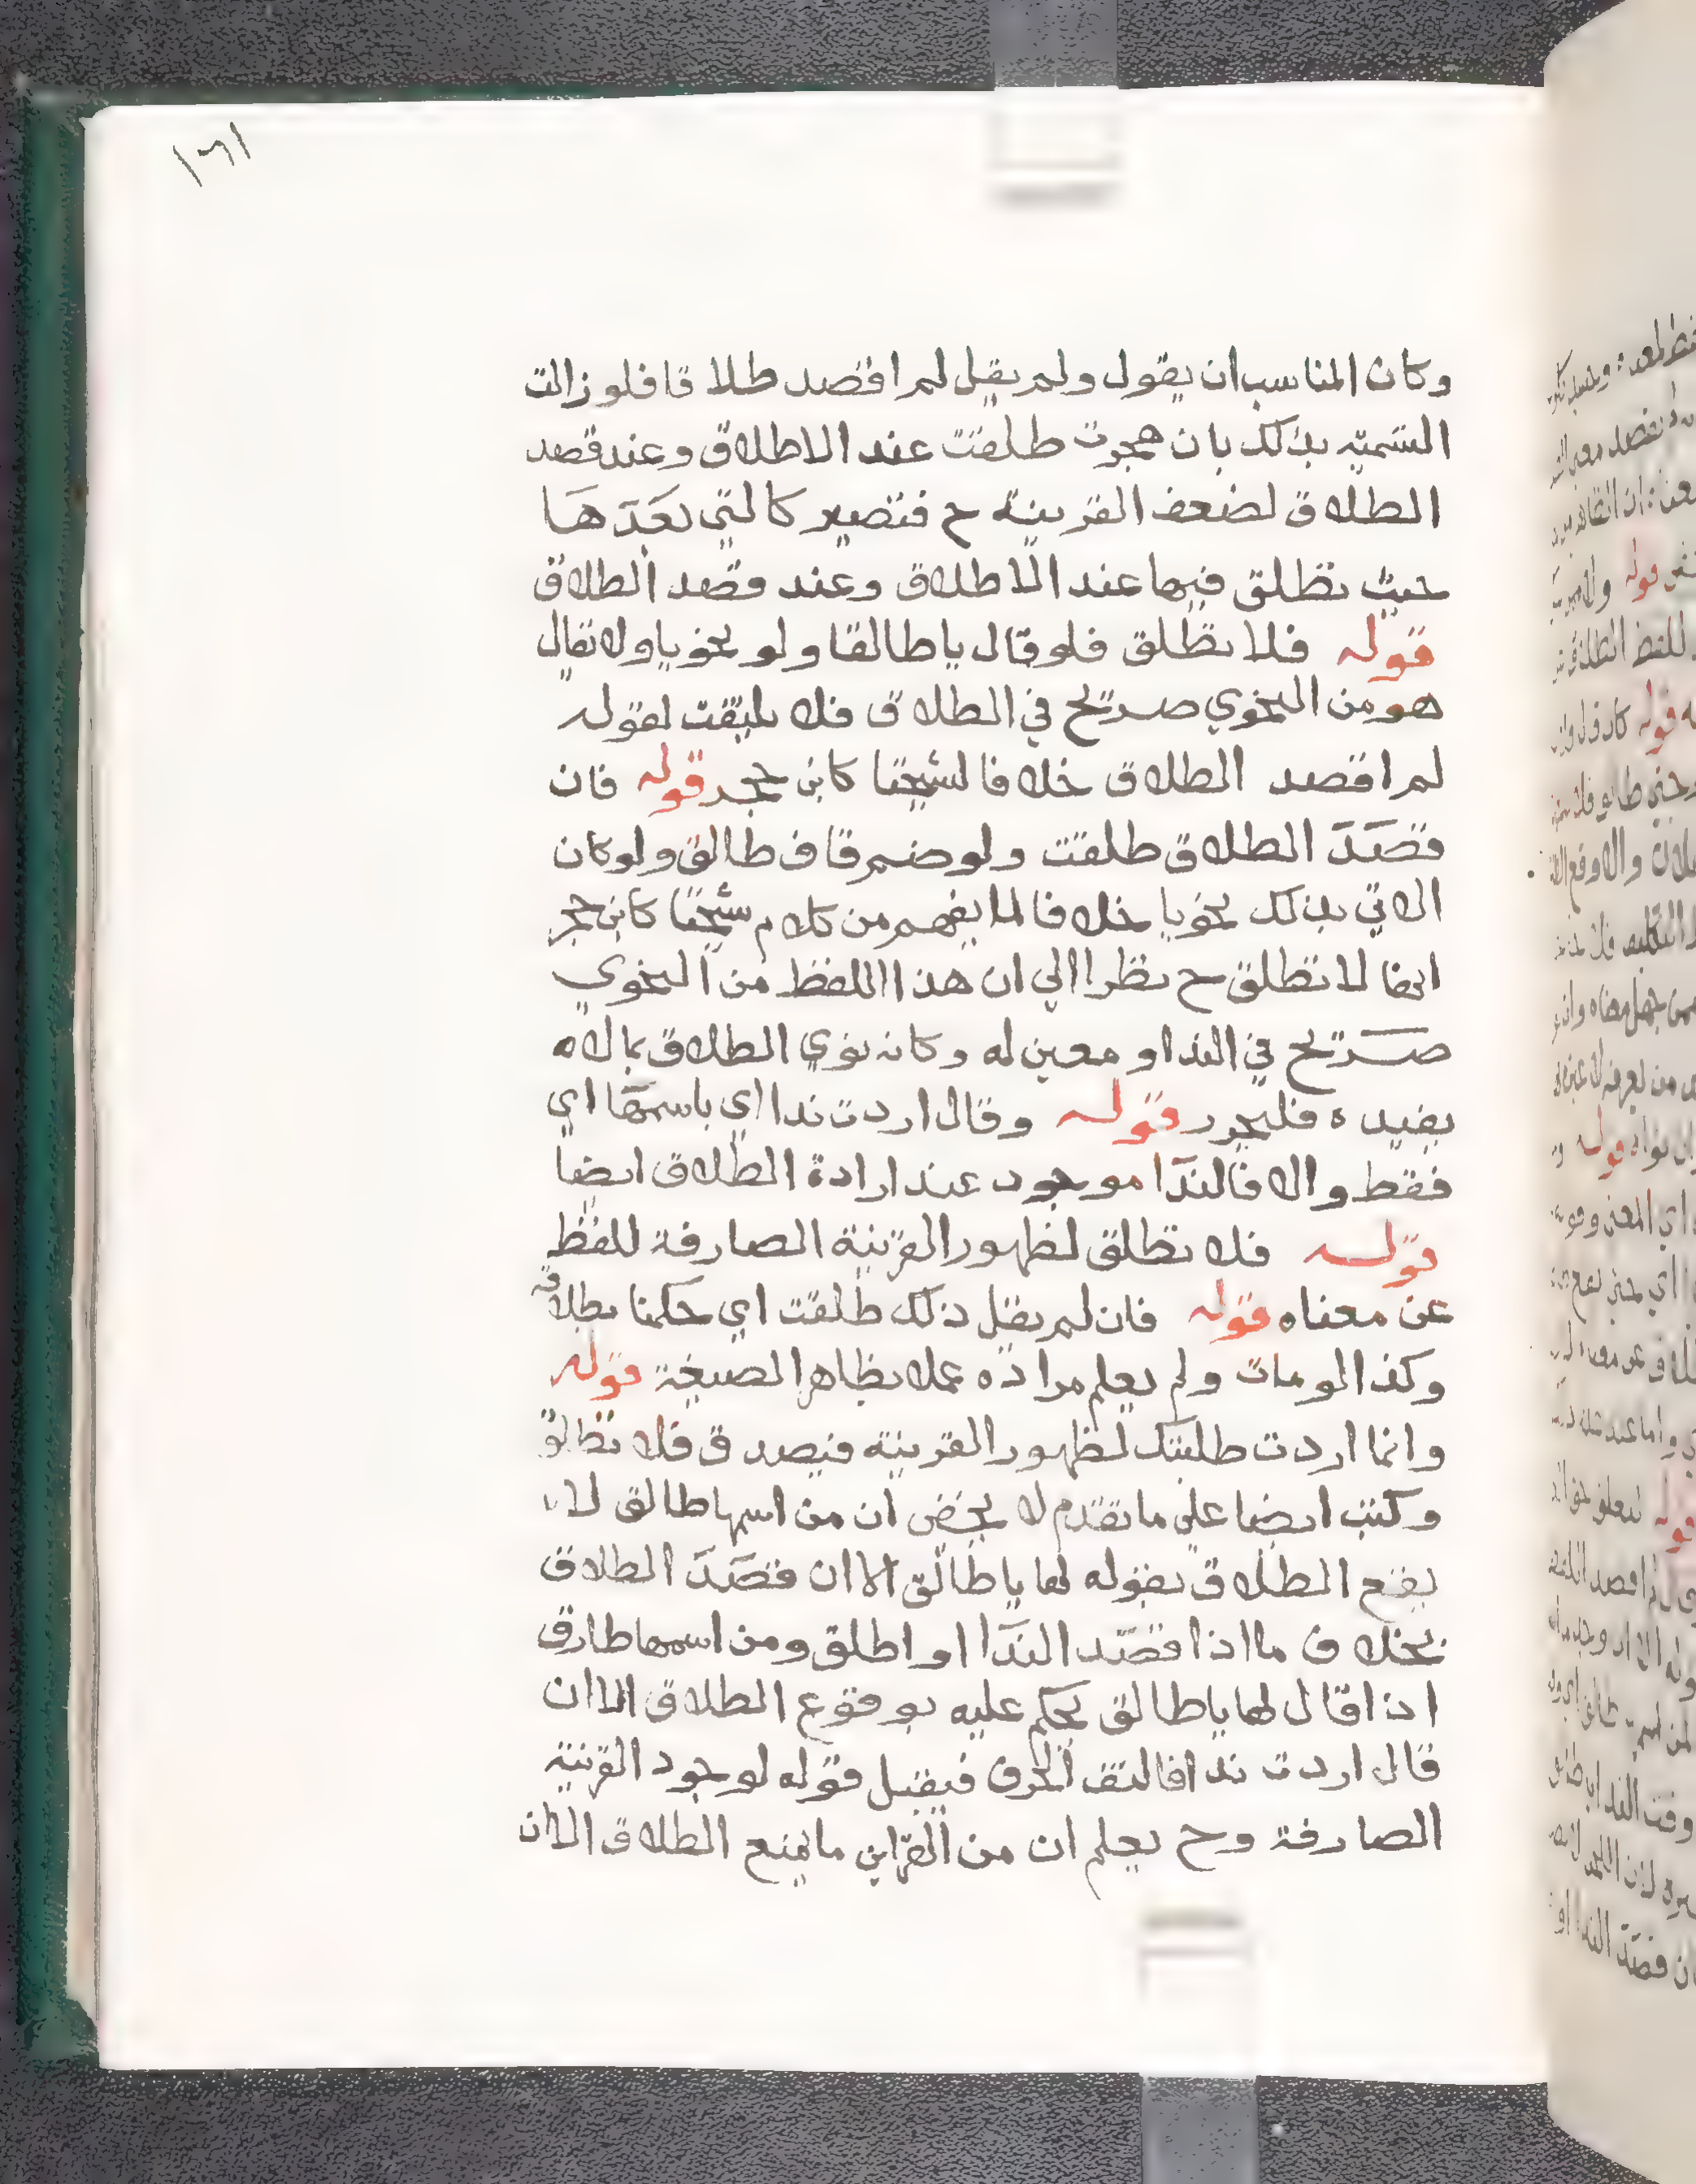 ١٦١
وكان المناسب ان يقول ولم يقل لم اقصد طلا قا فلو زالت
التسمية بذلك بان هجرت طلقت عند الاطلاق وعند قصد
الطلاق لضعف القرينة ح فتصير كالتي بعدها
حيث تطلق فيها عند الاطلاق وعند قصد الطلاق
قوله فلا تطلق فلو قال يا طالقا ولو نحويا ولا تقال
هو من النحوي صريح في الطلاق فلا يلتفت لقوله
لم اقصد الطلاق خلافا لشيخنا كابن حجر قوله فان
قصد الطلاق طلقت ولو ضم قاف طالق ولو كان
الاتي بذلك نحويا خلافا لما يفهم من كلام شيخنا كابن حجر
ايضا لا تطلق ح نظرا الي ان هذا اللفظ من النحوي
صريح في الندا و معين له وكانه نوي الطلاق بما لا
يفيده فليحرر قوله وقال اردت ندا اي باسمها اي
فقط والا فالندا موجود عند ارادة الطلاق ايضا
قوله فلا تطلق لظهور القرينة الصارفة للفظ
عن معناه قوله فان لم يقل ذلك طلقت اي حكمنا بطلاقه
وكذا لو مات ولم يعلم مراده عملا بظاهر الصيغة قوله
وانما اردت طلبتك لظهور القرينة فيصدق فلا تطلق
وكتب ايضا علي ما تقدم لا يخفي ان من اسمها طالق لا
يقع الطلاق بقوله لها يا طالق الا ان قصد الطلاق
بخلاف ما اذا قصد الندا او اطلق ومن اسمها طارق
اذا قال لها يا طالق يحكم عليه بوقوع الطلاق الا ان
قال اردت ندا فالتف الحرف فيقبل قوله لوجود القرينة
الصارفة وح يعلم ان من القراين ما يمنع الطلاق الا ان